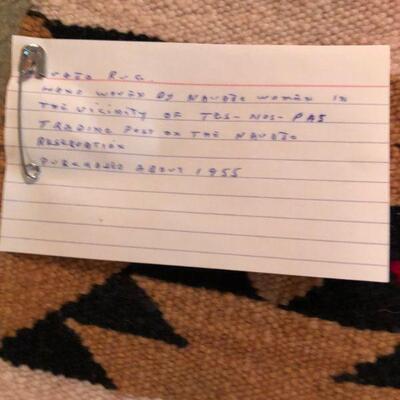 Navajo Rug.
Hand woven by Navajo women in
the vicinity of Tes-Nos-Pas
Trading Post on the Navajo
Reservation
Purchased about 1955